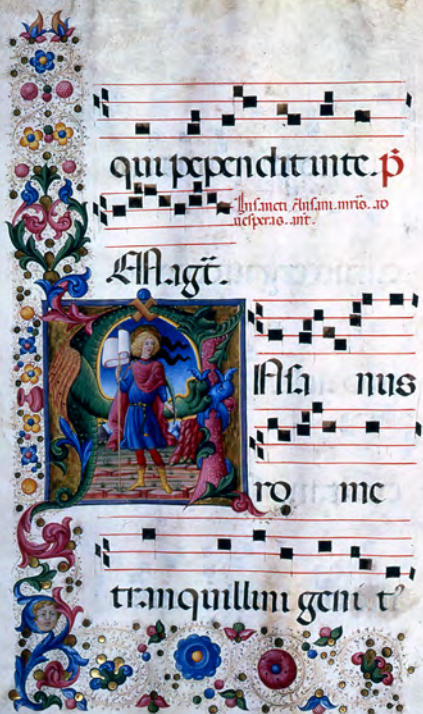 qui pependit in te. p̄
In sancti Ansani. mr̄is. ad
uesperas. ant̄.
Magt̄.
A
Nsa nus
ro me
tranquillini geni t'